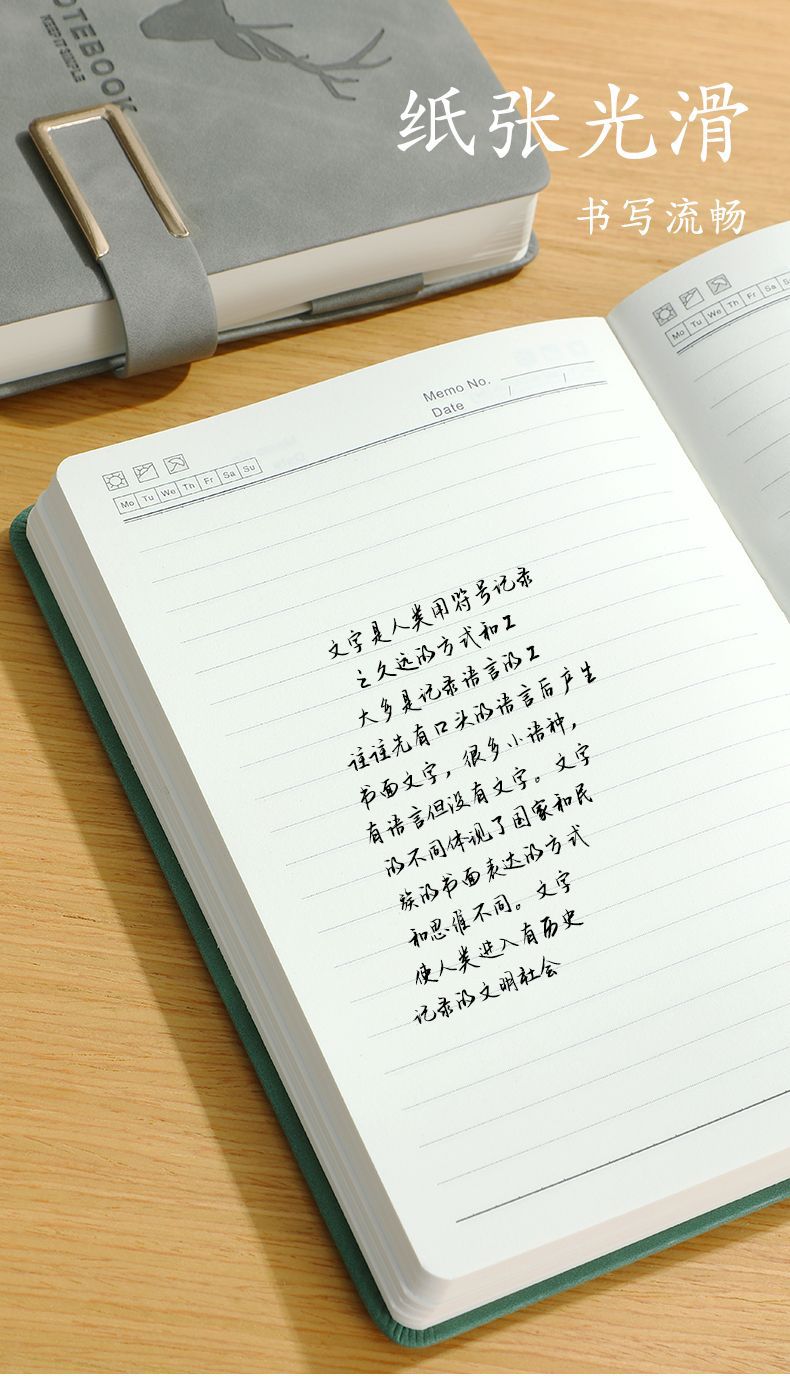 NOTEBOOK
KEEP IT SIMPLE
纸张光滑
书写流畅
Memo No.
Date / /
Mo Tu We Th Fr Sa Su
Mo Tu We Th Fr Sa
文字是人类用符号记录
之久远的方式和工
大多是记录语言的工
往往先有口头的语言后产生
书面文字，很多小语种，
有语言但没有文字。文字
的不同体现了国家和民
族的书面表达的方式
和思维不同。文字
使人类进入有历史
记录的文明社会